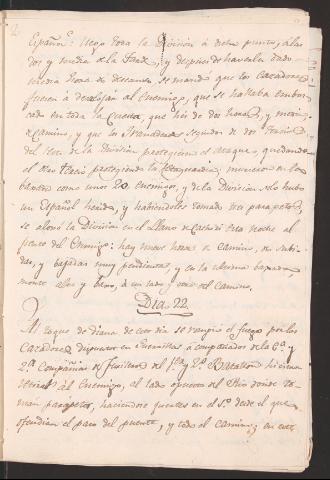 Españ.s llegó toda la Division á dicho punto, á las
dos y media de la tarde, y despues de haverla dado
media hora de descanso, se mandó que los Cazadores
fuesen á desalojar al enemigo, que se hallaba embos-
cado en toda la Cuesta, que hió de dos horas, y media
de camino, y que los Granaderos seguidos de dos tercios
del resto de la Division protegieran el ataque, quedando
el otro tercio protegiendo la Retaguardia; murieron en los
como unos 20 enemigos, y de la Division solo hubo
un Español herido, y habiendoles tomado tres parapetos,
se alojó la Division en el Llano de esta noche al
frente del Enemigo: hay nueve horas de camino, de subi-
das, y bajadas muy pendientes, y en la ultima bajada
monte alto y bajo, á un lado y otro del camino.
Dia 22
Al toque de diana de este dia se rompió el fuego por los
Cazadores dispuestos en Guerrillas á compañados de la 6.a y
2.a Compañias de fusileros del 1.o y 2.o Batallon
al Enemigo, al lado opuesto del Rio donde te-
nian parapetos, haciendose fuertes en el 1.o desde el que
ofendian el paso del puente, y todo el camino; en este